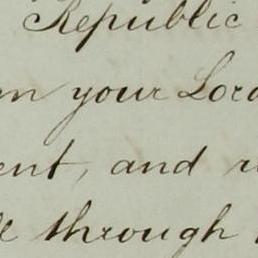 Republic
your Lord
and
through